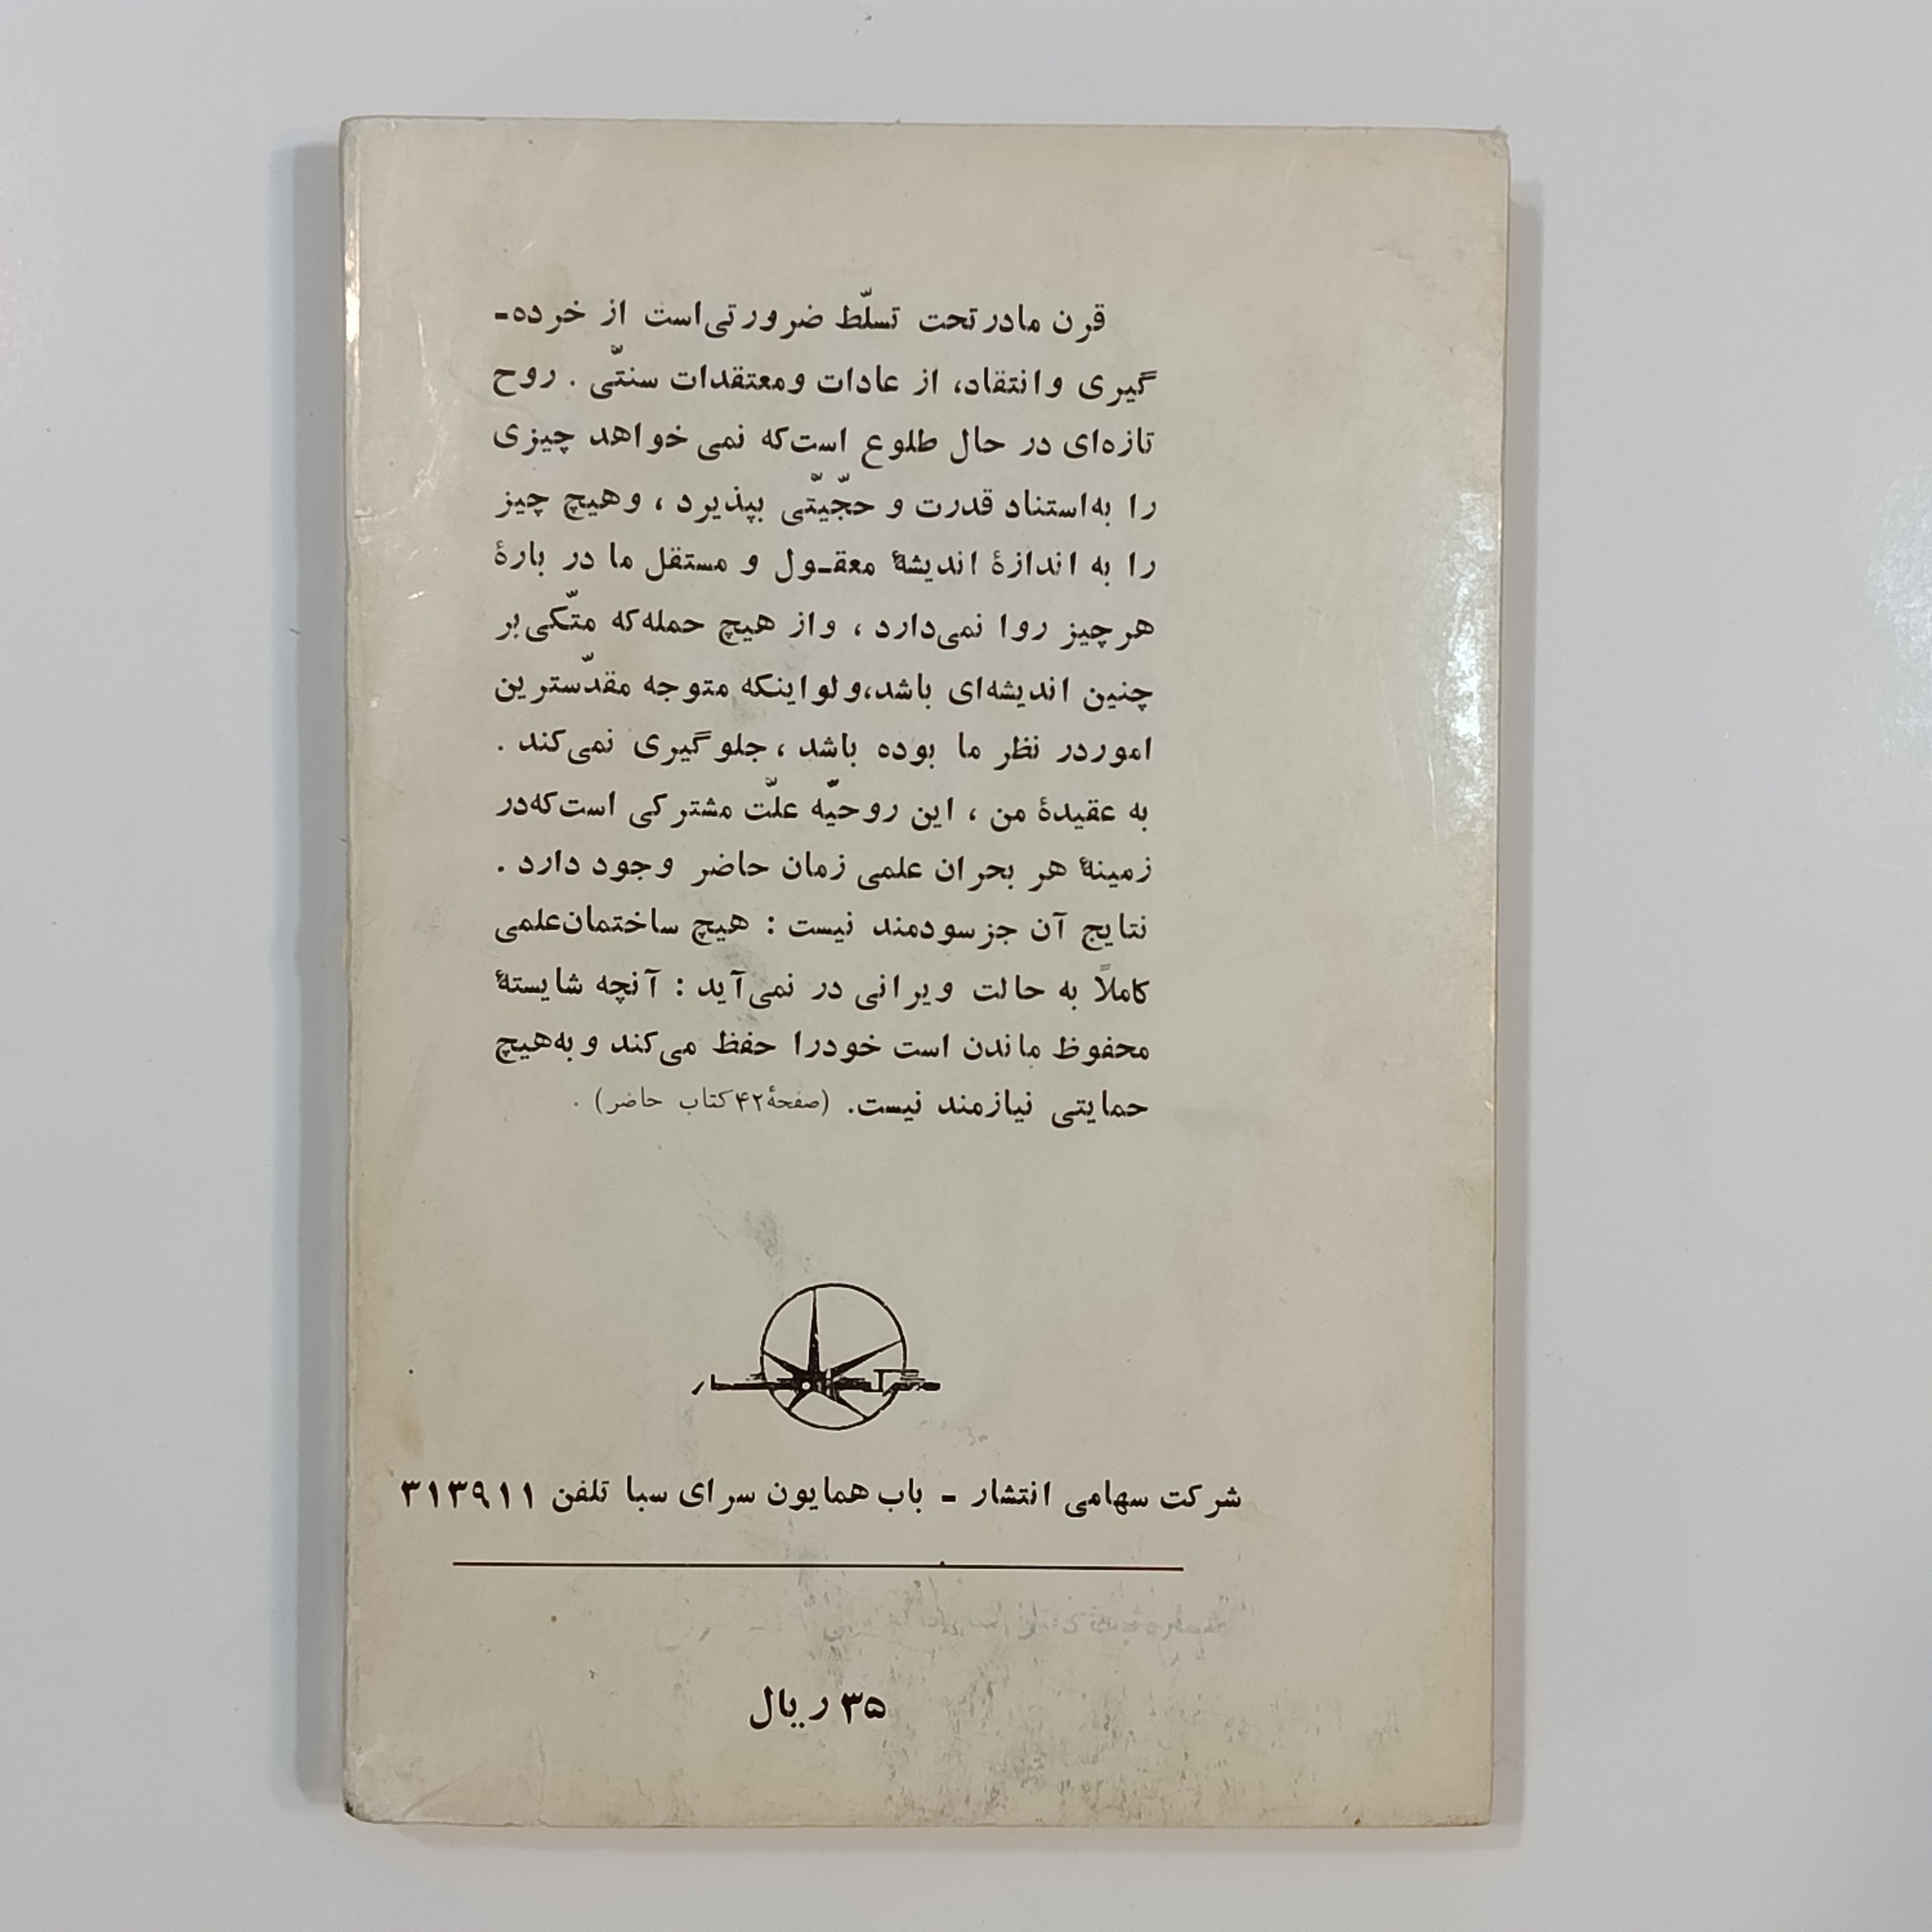 قرن ما در تحت تسلّط ضرورتی‌است از خرده-
گیری و انتقاد، از عادات و معتقدات سنتّی . روح
تازه‌ای در حال طلوع است‌که نمی‌خواهد چیزی
را به‌استناد قدرت و حجّیّتی بپذیرد ، و هیچ چیز
را به اندازهٔ اندیشهٔ معقـول و مستقل ما در بارهٔ
هر چیز روا نمی‌دارد ، و از هیچ حمله‌که متّکی‌بر
چنین اندیشه‌ای باشد،و لو اینکه متوجه مقدّسترین
امور در نظر ما بوده باشد ، جلوگیری نمی‌کند .
به عقیدهٔ من ، این روحیّه علّت مشترکی است‌که‌در
زمینهٔ هر بحران علمی زمان حاضر وجود دارد .
نتایج آن جز سودمند نیست : هیچ ساختمان‌علمی
کاملاً به حالت ویرانی در نمی‌آید : آنچه شایستهٔ
محفوظ ماندن است خودرا حفظ می‌کند و به‌هیچ
حمایتی نیازمند نیست. (صفحهٔ۴۲کتاب حاضر) .
شرکت سهامی انتشار - باب همایون سرای سبا تلفن ۳۱۳۹۱۱
۳۵ ریال